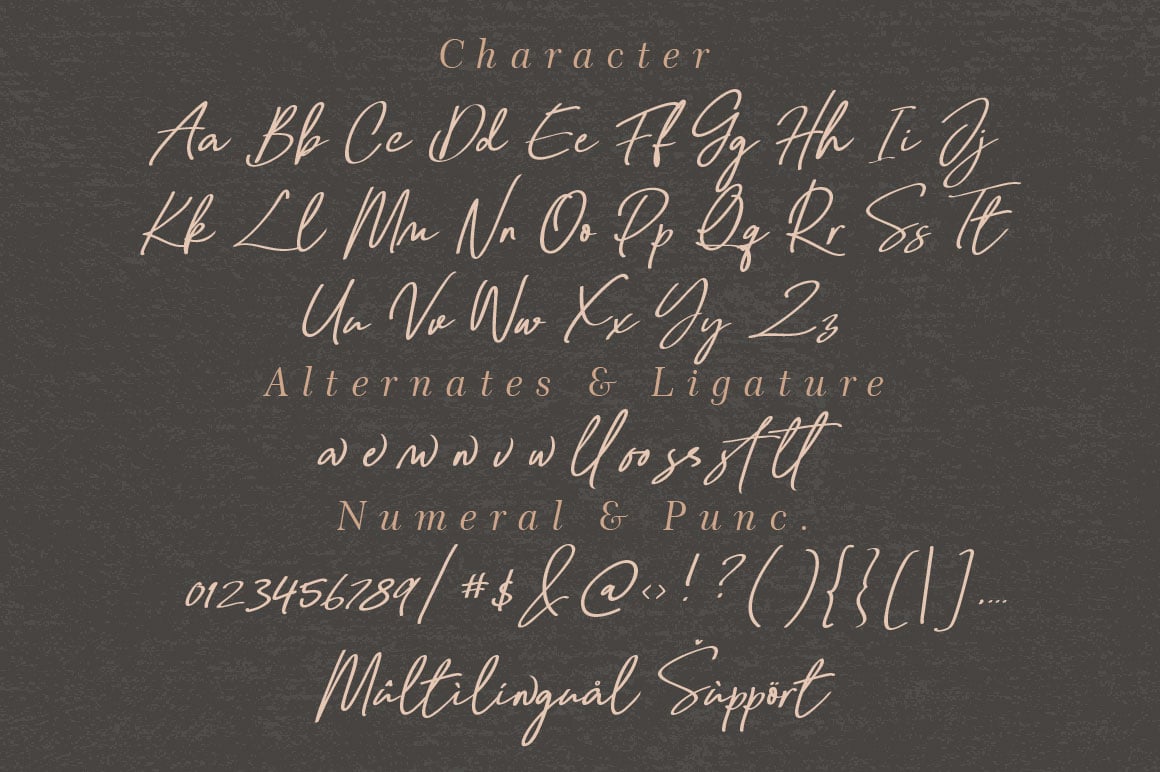 Character
Aa Bb Cc Dd Ee Ff Gg Hh Ii Jj
Kk Ll Mm Nn Oo Pp Qq Rr Ss Tt
Uu Vv Ww Xx Yy Zz
Alternates & Ligature
a e m n v w ll oo ss st tt
Numeral & Punc.
0123456789/ #$&@<>!?(){}[|].,...
Mûltilínguål Šùppört